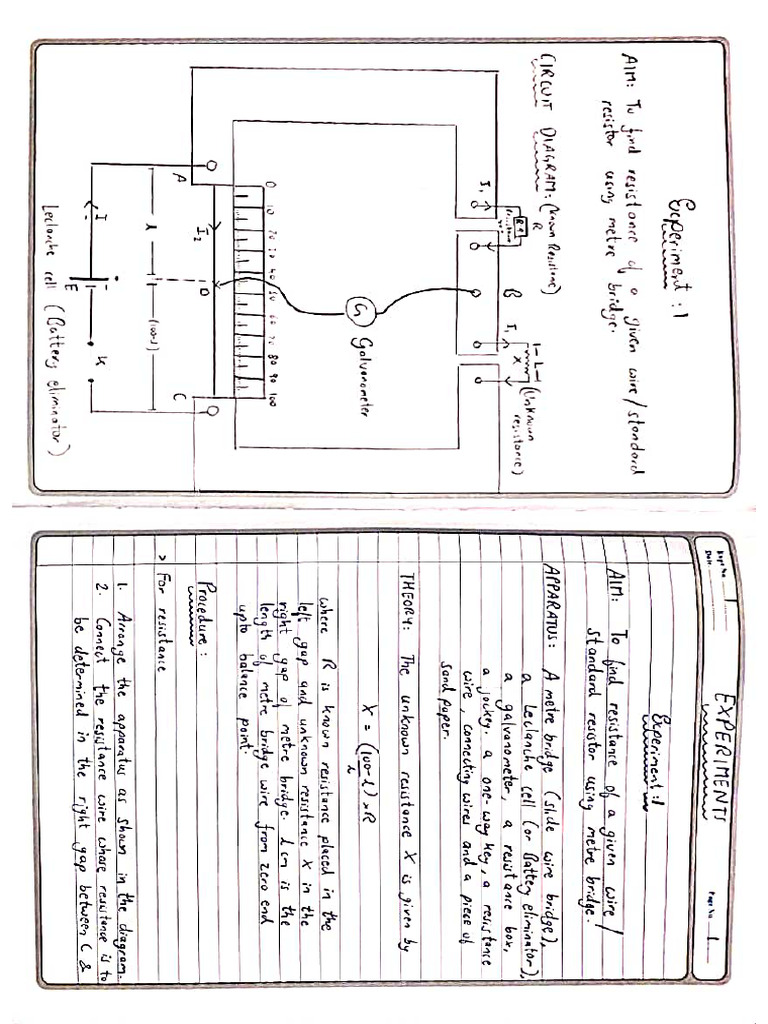 Experiment:1
AIM: To find resistance of a given wire/standard
resistor using metre bridge.
CIRCUIT DIAGRAM:
(Known Resistance)
R
(Unknown
resistance)
I₁
B
I₁
X
G
Galvanometer
0 10 20 30 40 50 60 70 80 90 100
A
I₂
D
C
l
(100-l)
I
E
K
Leclanche cell (Battery eliminator)
EXPERIMENTS
Expt No. 1
Date
Page No. 1
Experiment:1
AIM: To find resistance of a given wire/
standard resistor using metre bridge.
APPARATUS: A metre bridge (slide wire bridge),
a Leclanche cell (or Battery eliminator),
a galvanometer, a resistance box,
a jockey, a one-way key, a resistance
wire, connecting wires and a piece of
sand paper.
THEORY: The unknown resistance X is given by
X = (100-l)/l × R
where R is known resistance placed in the
left gap and unknown resistance X in the
right gap of metre bridge. l cm is the
length of metre bridge wire from zero end
upto balance point.
Procedure:
> For resistance
1. Arrange the apparatus as shown in the diagram.
2. Connect the resistance wire whose resistance is to
be determined in the right gap between C &